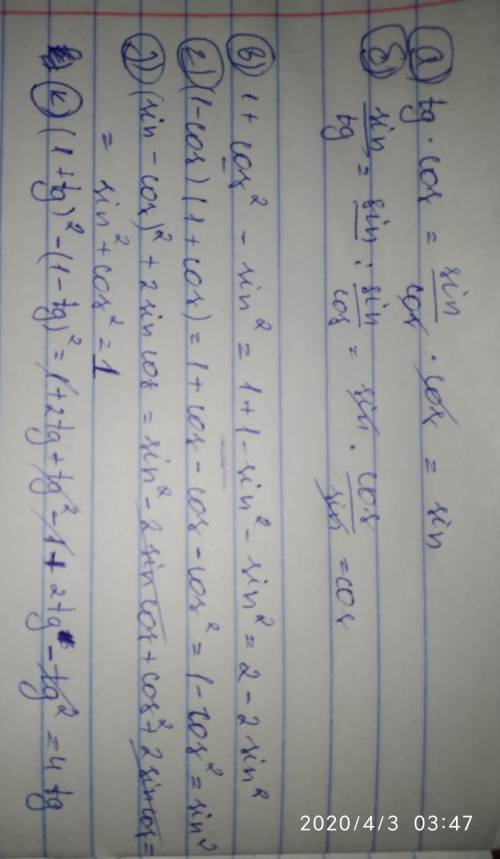 а) tg · cos = sin/cos · cos = sin
б) sin/tg = sin : sin/cos = sin · cos/sin = cos
в) 1 + cos² - sin² = 1 + 1 - sin² - sin² = 2 - 2 sin²
г) (1 - cos)(1 + cos) = 1 + cos - cos - cos² = 1 - cos² = sin²
д) (sin - cos)² + 2 sin cos = sin² - 2 sin cos + cos² + 2 sin cos =
= sin² + cos² = 1
к) (1 + tg)² - (1 - tg)² = 1 + 2tg + tg² - 1 + 2tg - tg² = 4 tg
2020/4/3 03:47